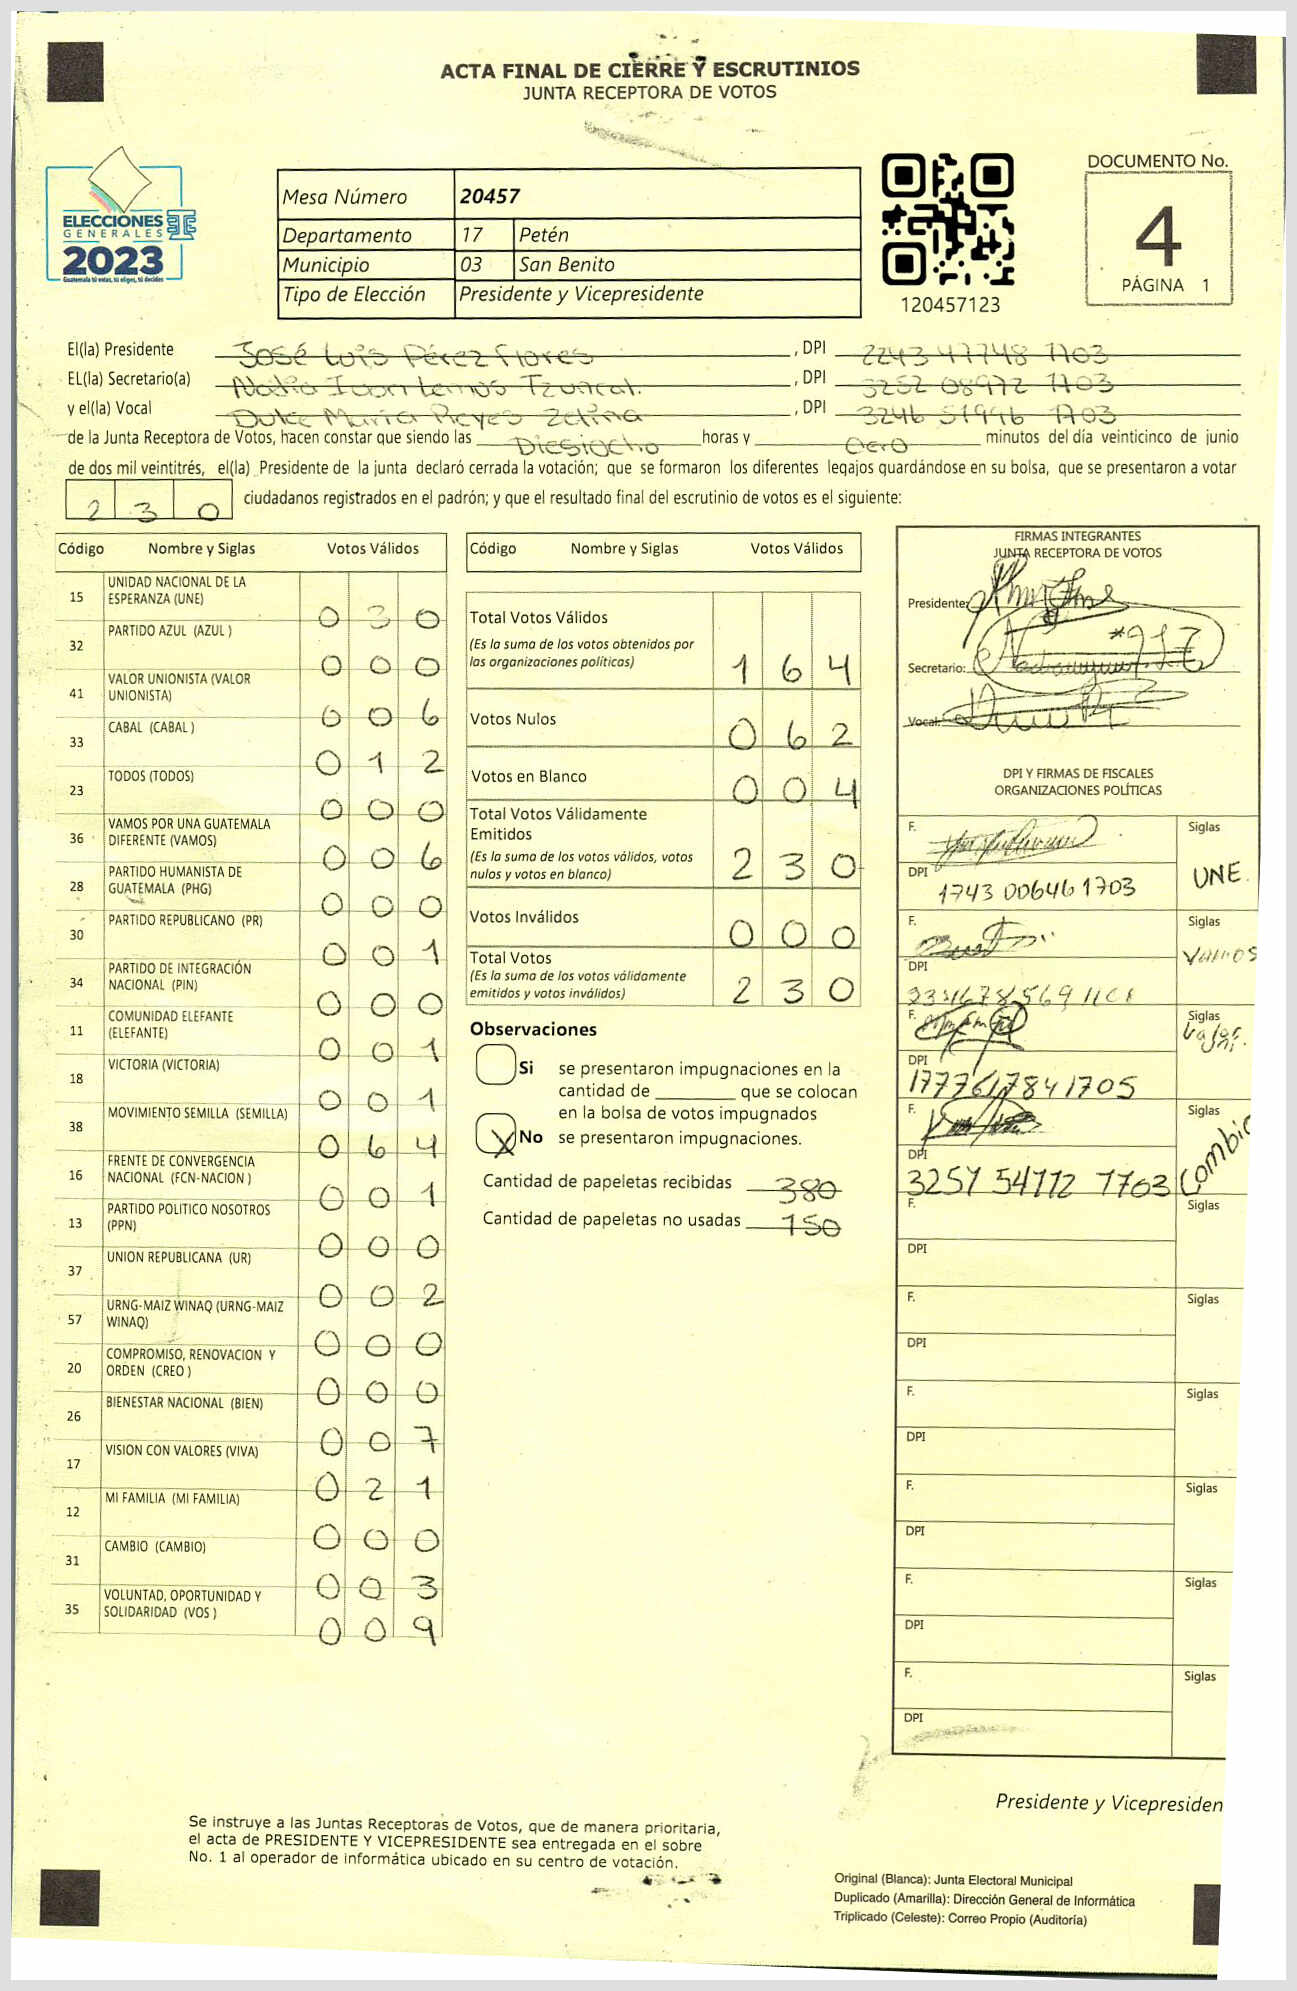 ACTA FINAL DE CIERRE Y ESCRUTINIOS
JUNTA RECEPTORA DE VOTOS
ELECCIONES
GENERALES
2023
Guatemala tú votas, tú eliges, tú decides
Mesa Número 20457
Departamento 17 Petén
Municipio 03 San Benito
Tipo de Elección Presidente y Vicepresidente
120457123
DOCUMENTO No.
4
PÁGINA 1
El(la) Presidente José Luis Pérez Flores , DPI 2243 47748 1703
EL(la) Secretario(a) Lemos Tzuncal. , DPI 3252 08972 1703
y el(la) Vocal Dulce María Reyes Zetina , DPI 3246 51996 1703
de la Junta Receptora de Votos, hacen constar que siendo las Diesiocho horas y Cero minutos del día veinticinco de junio
de dos mil veintitrés, el(la) Presidente de la junta declaró cerrada la votación; que se formaron los diferentes legajos guardándose en su bolsa, que se presentaron a votar
2 3 0 ciudadanos registrados en el padrón; y que el resultado final del escrutinio de votos es el siguiente:
Código Nombre y Siglas Votos Válidos
15 UNIDAD NACIONAL DE LA ESPERANZA (UNE) 0 3 0
32 PARTIDO AZUL (AZUL ) 0 0 0
41 VALOR UNIONISTA (VALOR UNIONISTA) 0 0 6
33 CABAL (CABAL ) 0 1 2
23 TODOS (TODOS) 0 0 0
36 VAMOS POR UNA GUATEMALA DIFERENTE (VAMOS) 0 0 6
28 PARTIDO HUMANISTA DE GUATEMALA (PHG) 0 0 0
30 PARTIDO REPUBLICANO (PR) 0 0 1
34 PARTIDO DE INTEGRACIÓN NACIONAL (PIN) 0 0 0
11 COMUNIDAD ELEFANTE (ELEFANTE) 0 0 1
18 VICTORIA (VICTORIA) 0 0 1
38 MOVIMIENTO SEMILLA (SEMILLA) 0 6 4
16 FRENTE DE CONVERGENCIA NACIONAL (FCN-NACION ) 0 0 1
13 PARTIDO POLITICO NOSOTROS (PPN) 0 0 0
37 UNION REPUBLICANA (UR) 0 0 2
57 URNG-MAIZ WINAQ (URNG-MAIZ WINAQ) 0 0 0
20 COMPROMISO, RENOVACION Y ORDEN (CREO ) 0 0 0
26 BIENESTAR NACIONAL (BIEN) 0 0 7
17 VISION CON VALORES (VIVA) 0 2 1
12 MI FAMILIA (MI FAMILIA) 0 0 0
31 CAMBIO (CAMBIO) 0 0 3
35 VOLUNTAD, OPORTUNIDAD Y SOLIDARIDAD (VOS ) 0 0 9
Código Nombre y Siglas Votos Válidos
Total Votos Válidos
(Es la suma de los votos obtenidos por
las organizaciones políticas) 1 6 4
Votos Nulos 0 6 2
Votos en Blanco 0 0 4
Total Votos Válidamente
Emitidos
(Es la suma de los votos válidos, votos
nulos y votos en blanco) 2 3 0
Votos Inválidos 0 0 0
Total Votos
(Es la suma de los votos válidamente
emitidos y votos inválidos) 2 3 0
Observaciones
Si se presentaron impugnaciones en la
cantidad de ________ que se colocan
en la bolsa de votos impugnados
X No se presentaron impugnaciones.
Cantidad de papeletas recibidas 380
Cantidad de papeletas no usadas 150
FIRMAS INTEGRANTES
JUNTA RECEPTORA DE VOTOS
Presidente:
Secretario:
Vocal:
DPI Y FIRMAS DE FISCALES
ORGANIZACIONES POLÍTICAS
F. Siglas
DPI 1743 00646 1703 UNE.
F. Siglas
DPI Vamos
F. Siglas
DPI 1777617841705
F. Siglas
DPI 3257 54772 1703 Cambio
F. Siglas
DPI
F. Siglas
DPI
F. Siglas
DPI
F. Siglas
DPI
F. Siglas
DPI
F. Siglas
DPI
Presidente y Vicepresiden
Se instruye a las Juntas Receptoras de Votos, que de manera prioritaria,
el acta de PRESIDENTE Y VICEPRESIDENTE sea entregada en el sobre
No. 1 al operador de informática ubicado en su centro de votación.
Original (Blanca): Junta Electoral Municipal
Duplicado (Amarilla): Dirección General de Informática
Triplicado (Celeste): Correo Propio (Auditoría)